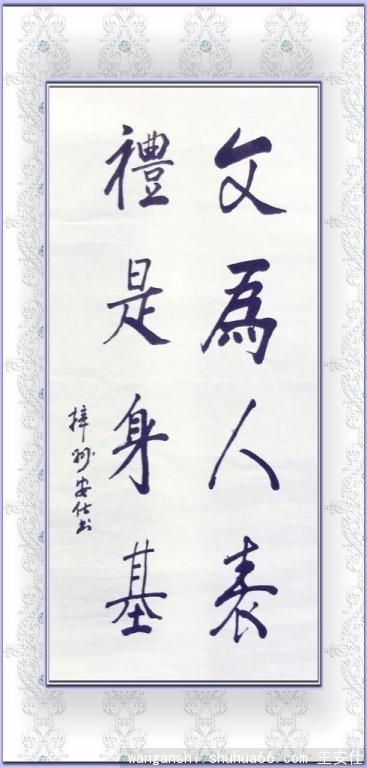 文為人表
禮是身基
梓州安仕书
wanganshi.shuhua66.com 王安仕